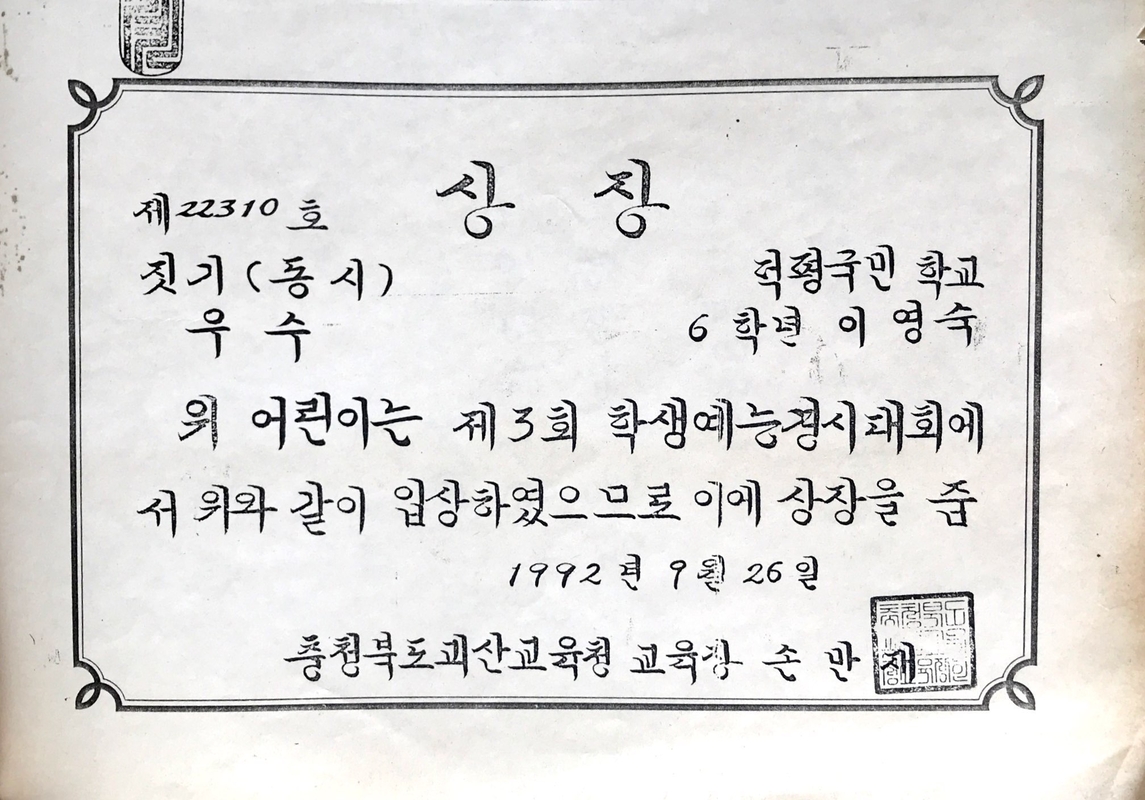 상 장
제 22310 호
짓기 (동시)
우 수
덕평국민 학교
6 학년 이 영숙
위 어린이는 제3회 학생예능경시대회에
서 위와 같이 입상하였으므로 이에 상장을 줌
1992 년 9월 26 일
충청북도괴산교육청 교육장 손 만 재